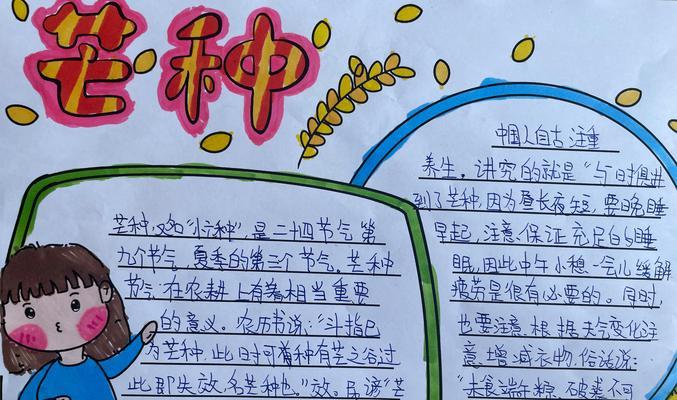 芒种
芒种,又名"忙种",是二十四节气第
九个节气,夏季的第三个节气。芒种
节气在农耕上有着相当重要
的意义。农历书说:"斗指巳
为芒种,此时可种有芒之谷过
此即失效,名芒种也。"效。民谚"芒
中国人自古注重
养生。讲究的就是"与时俱进
到了芒种,因为昼长夜短,要晚睡
早起,注意保证充足的睡
眠,因此中午小憩一会儿缓解
疲劳是很有必要的。同时,
也要注意根据天气变化注
意增减衣物,俗话说:
"未食端午粽,破裘不可